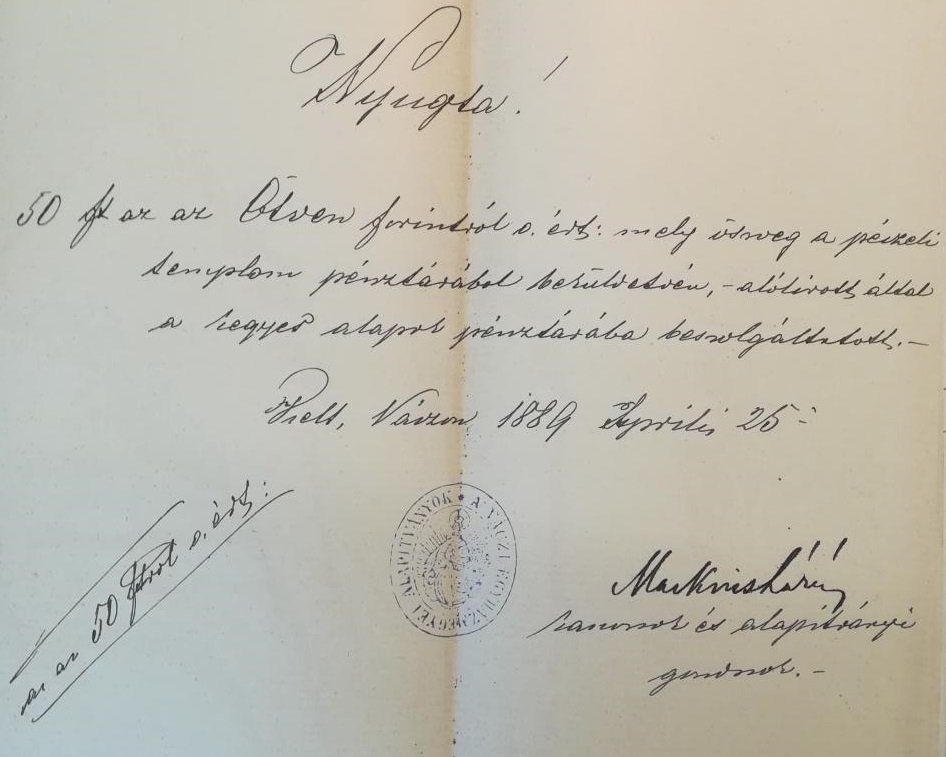 Nyugta!
50 ft az az Ötven forintról o. ért: mely össweg a péczeli
templom pénztárából beküldetvén, – alólirott által
a kegyes alapok pénztárába beszolgáltatott. –
Kelt, Váczon 1889 Április 25.
az az 50 ftról o. ért:
A VÁCZI EGYHÁZMEGYEI ALAPÍTVÁNYOK
kanonok és alapitványi
gondnok. –